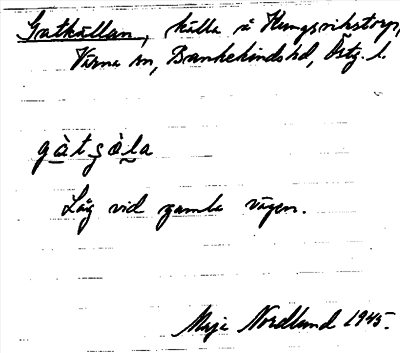 Gatkällan, källa å Kungsrikstorp,
Värna sn, Bankekindshd, Östg. l.
gàtʂàla
Låg vid gamla vägen.
Maja Nordlund 1945.